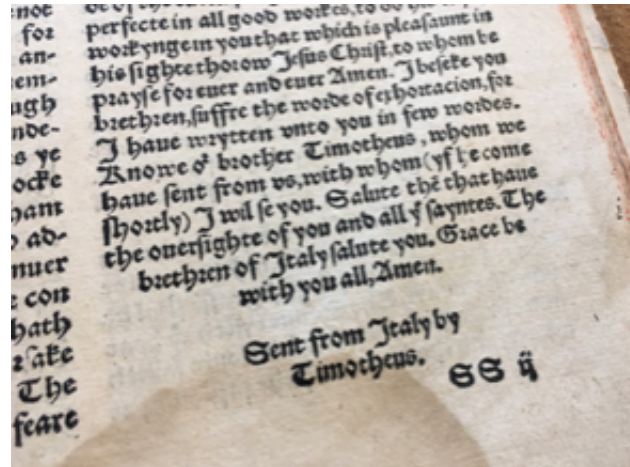 not
for
an-
em-
ugh
nde-
s ye
ocke
ham
ad-
nuer
con
hath
sake
The
feare
perfecte in all good workes, to do his
workynge in you that which is pleasaunt in
his sighte thorow Jesus Christ, to whom be
prayse for euer and euer Amen. I beseke you
brethren, suffre the worde of exhortacion, for
I haue wrytten vnto you in few wordes.
Knowe oͬ brother Timotheus, whom we
haue sent from vs, with whom (yf he come
shortly) I wil se you. Salute thē that haue
the ouersighte of you and all yͤ sayntes. The
brethren of Italy salute you. Grace be
with you all, Amen.
Sent from Italy by
Timotheus.
SS ij